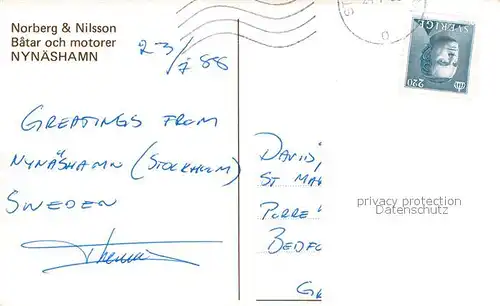 Norberg & Nilsson
Båtar och motorer
NYNÄSHAMN
23/7 88
GREATINGS FROM
NYNÄSHAMN (STOCKHOLM)
SWEDEN
SVERIGE
220
DAVID,
ST
BEDFO
privacy protection
Datenschutz